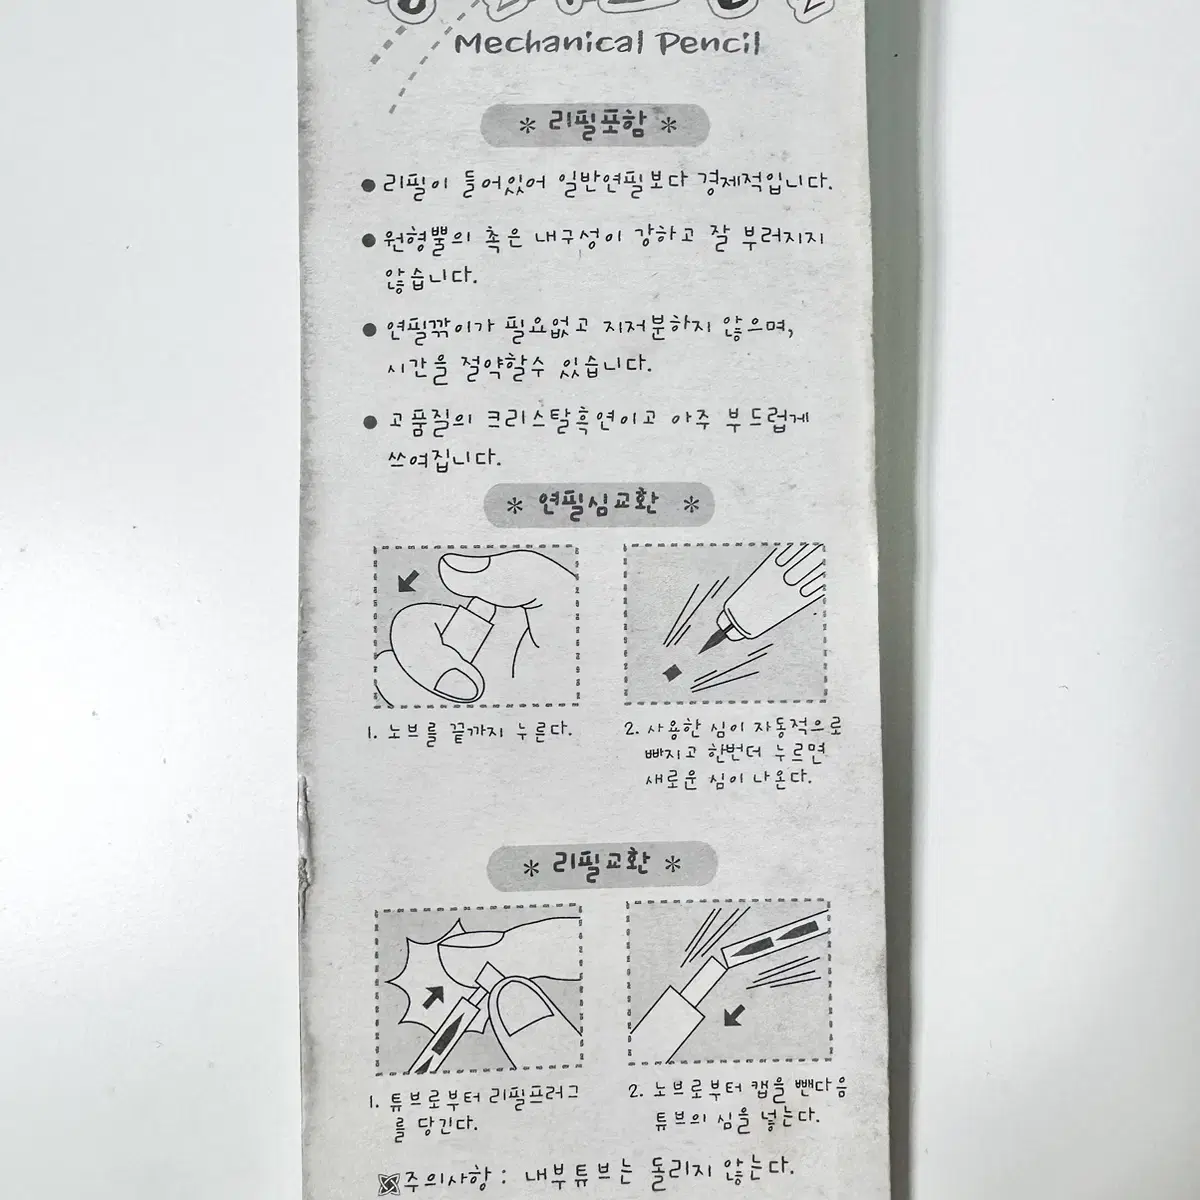 Mechanical Pencil
* 리필포함 *
● 리필이 들어있어 일반연필보다 경제적입니다.
● 원형뿔의 촉은 내구성이 강하고 잘 부러지지
않습니다.
● 연필깎이가 필요없고 지저분하지 않으며,
시간을 절약할수 있습니다.
● 고품질의 크리스탈흑연이고 아주 부드럽게
쓰여집니다.
* 연필심교환 *
1. 노브를 끝까지 누른다.
2. 사용한 심이 자동적으로
빠지고 한번더 누르면
새로운 심이 나온다.
* 리필교환 *
1. 튜브로부터 리필프러그
를 당긴다.
2. 노브로부터 캡을 뺀다음
튜브의 심을 넣는다.
※주의사항 : 내부튜브는 돌리지 않는다.